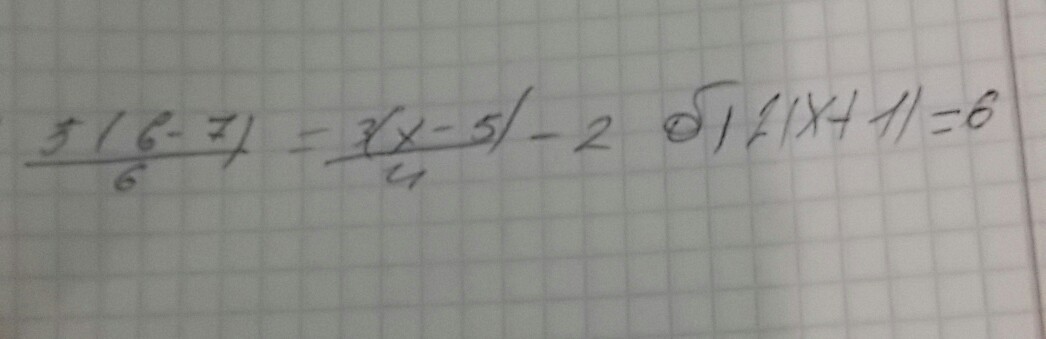 5(6-7)/6 = 3(x-5)/4 - 2 б) 2|x+1|=6